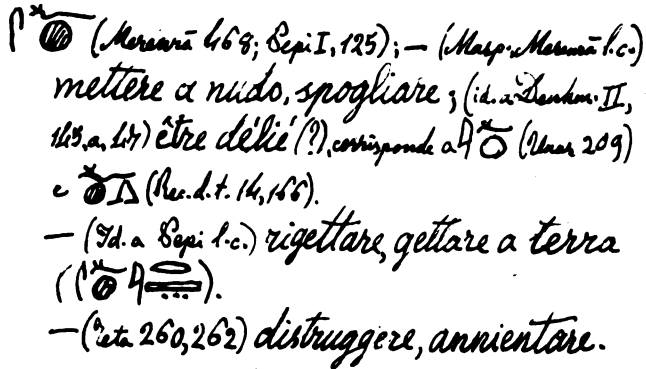 (Merenrā 468; Pepi I, 125); — (Masp. Merenrā l.c.)
mettere a nudo, spogliare; (id. a Denkm. II,
être délié (?), corrisponde a (Unas 209)
e (Rec. d. t. 14, 166).
— (Id. a Pepi l.c.) rigettare, gettare a terra
— (Teta 260, 262) distruggere, annientare.